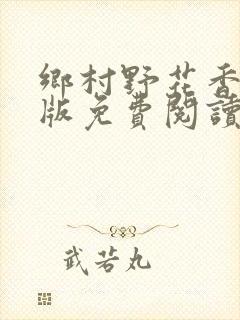 鄉村野花香
版免費閱讀
武若丸